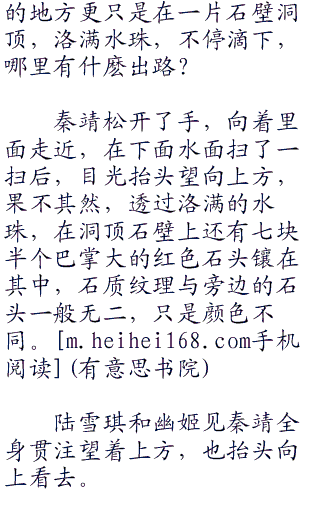 的地方更只是在一片石壁洞
顶，洛满水珠，不停滴下，
哪里有什麽出路？
秦靖松开了手，向着里
面走近，在下面水面扫了一
扫后，目光抬头望向上方，
果不其然，透过洛满的水
珠，在洞顶石壁上还有七块
半个巴掌大的红色石头镶在
其中，石质纹理与旁边的石
头一般无二，只是颜色不
同。[m.heihei168.com手机
阅读](有意思书院)
陆雪琪和幽姬见秦靖全
身贯注望着上方，也抬头向
上看去。